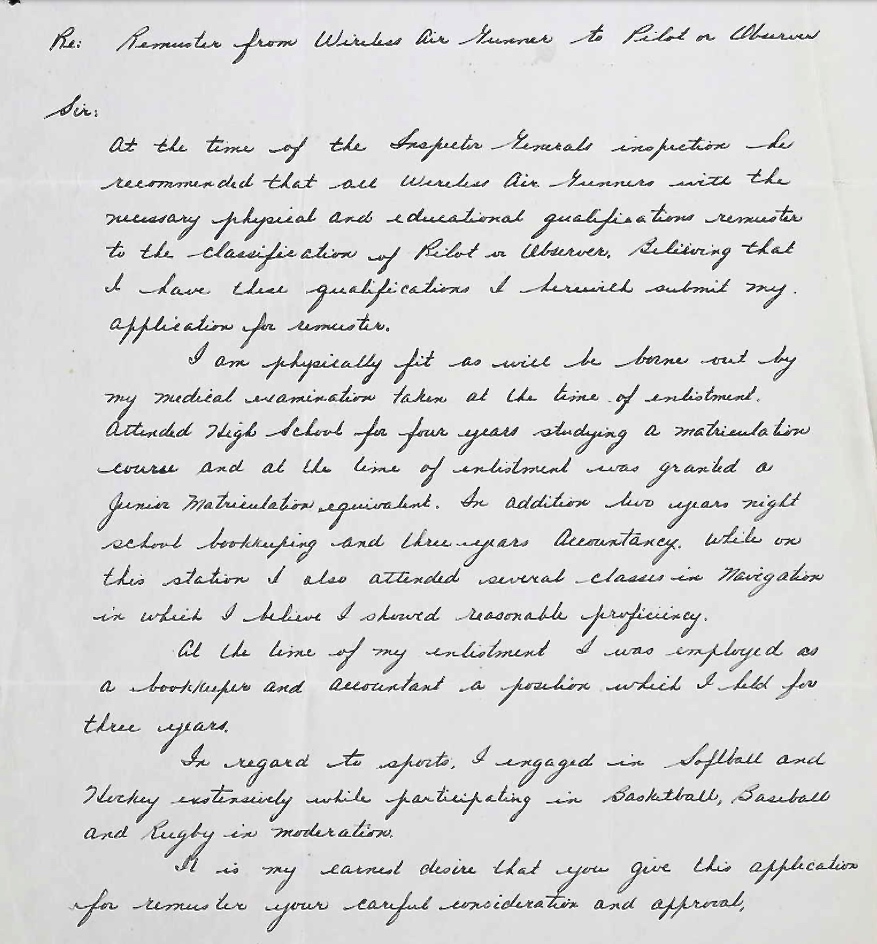 Re: Remuster from Wireless Air Gunner to Pilot or Observer
Sir:
At the time of the Inspector Generals inspection he
recommended that all Wireless Air Gunners with the
necessary physical and educational qualifications remuster
to the classification of Pilot or Observer. Believing that
I have these qualifications I herewith submit my
application for remuster.
I am physically fit as will be borne out by
my medical examination taken at the time of enlistment.
Attended High School for four years studying a matriculation
course and at the time of enlistment was granted a
Junior Matriculation equivalent. In addition two years night
school bookkeeping and three years Accountancy. While on
this station I also attended several classes in Navigation
in which I believe I showed reasonable proficiency.
At the time of my enlistment I was employed as
a bookkeeper and accountant a position which I held for
three years.
In regard to sports, I engaged in Softball and
Hockey exstensively while participating in Basketball, Baseball
and Rugby in moderation.
It is my earnest desire that you give this application
for remuster your careful consideration and approval,